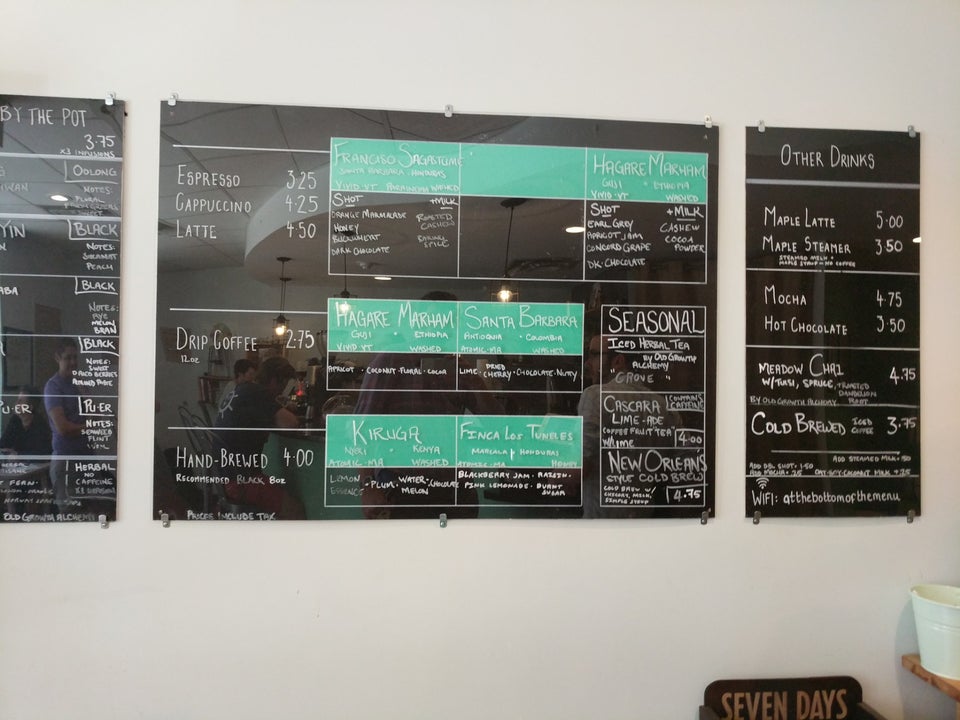 BY THE POT
3.75
x3 INFUSIONS
OOLONG
NOTES:
FLORAL
YIN
BLACK
NOTES:
PEACH
BLACK
NOTES:
RYE
MELON
BRAN
BLACK
NOTES:
SWEET
DRIED BERRIES
PU·ER
PU·ER
NOTES:
SEAWEED
FLINT
HERBAL
NO
CAFFEINE
OLD GROWTH ALCHEMY
ESPRESSO 3.25
CAPPUCCINO 4.25
LATTE 4.50
FRANCISO SAGASTUME
SANTA BARBARA · HONDURAS
VIVID·VT PARAINEMA WASHED
SHOT
ORANGE MARMALADE
HONEY
BUCKWHEAT
DARK CHOCOLATE
+MILK
ROASTED
CASHEW
BAKING
SPICE
HAGARE MARHAM
GUJI · ETHIOPIA
VIVID·VT WASHED
SHOT
EARL GREY
APRICOT JAM
CONCORD GRAPE
DK·CHOCOLATE
+MILK
CASHEW
COCOA
POWDER
DRIP COFFEE 2.75
12oz
HAGARE MARHAM
GUJI · ETHIOPIA
VIVID·VT WASHED
APRICOT · COCONUT·FLORAL·COCOA
SANTA BARBARA
ANTIOQUIA · COLOMBIA
ATOMIC·MA WASHED
LIME · DRIED CHERRY·CHOCOLATE·NUTTY
HAND-BREWED 4.00
RECOMMENDED BLACK 8oz
KIRUGA
NYERI · KENYA
ATOMIC·MA WASHED
LEMON ESSENCE · PLUM · WATERMELON · CHOCOLATE
FINCA LOS TUNELES
MARCALA HONDURAS
ATOMIC·MA HONEY
BLACKBERRY JAM · RAISIN·
PINK LEMONADE· BURNT
SUGAR
PRICES INCLUDE TAX
SEASONAL
ICED HERBAL TEA
BY OLD GROWTH
ALCHEMY
"GROVE"
CASCARA
CONTAINS
CAFFEINE
LIME·ADE
COFFEE FRUIT TEA
w/lime 4.00
NEW ORLEANS
STYLE COLD BREW
COLD BREW w/
CHICORY, MILK,
SIMPLE SYRUP
4.75
OTHER DRINKS
MAPLE LATTE 5.00
MAPLE STEAMER 3.50
STEAMED MILK +
MAPLE SYRUP — NO COFFEE
MOCHA 4.75
HOT CHOCOLATE 3.50
MEADOW CHAI 4.75
W/TULSI, SPRUCE, + ROASTED
DANDELION
ROOT
BY OLD GROWTH ALCHEMY
COLD BREWED ICED COFFEE 3.75
ADD STEAMED MILK +.50
ADD DBL SHOT + 1.50
ADD MOCHA + .25 OAT·SOY·COCONUT MILK + .75
WIFI: atthebottomofthemenu
SEVEN DAYS